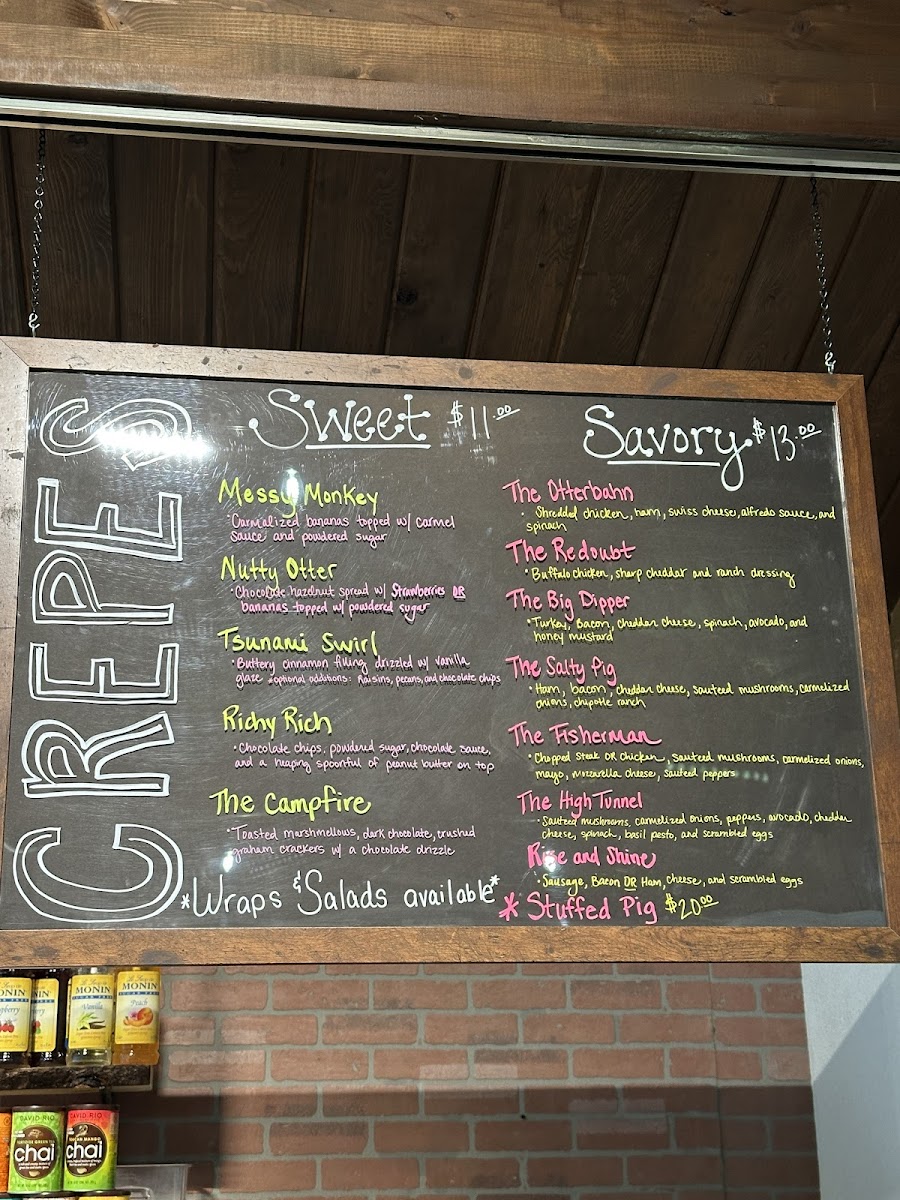 CREPES
Sweet $11.00
Messy Monkey
·Carmalized bananas topped w/ carmel
sauce and powdered sugar
Nutty Otter
·Chocolate hazelnut spread w/ Strawberries OR
bananas topped w/ powdered sugar
Tsunami Swirl
·Buttery cinnamon filling drizzled w/ vanilla
glaze *optional additions: Raisins, pecans, and chocolate chips
Richy Rich
·Chocolate chips, powdered sugar, chocolate sauce,
and a heaping spoonful of peanut butter on top
The Campfire
·Toasted marshmellows, dark chocolate, crushed
graham crackers w/ a chocolate drizzle
*Wraps & Salads available*
Savory $13.00
The Otterbahn
· Shredded chicken, ham, swiss cheese, alfredo sauce, and
spinach
The Redoubt
·Buffalo chicken, sharp cheddar and ranch dressing
The Big Dipper
·Turkey, Bacon, cheddar cheese, spinach, avocado, and
honey mustard
The Salty Pig
·Ham, bacon, cheddar cheese, sauteed mushrooms, carmelized
onions, chipotle ranch
The Fisherman
·Chopped Steak OR Chicken, sauteed mushrooms, carmelized onions,
mayo, mozzarella cheese, sauteed peppers
The High Tunnel
·Sauteed mushrooms, carmelized onions, peppers, avocado, cheddar
cheese, spinach, basil pesto, and scrambled eggs
Rise and Shine
·Sausage, Bacon OR Ham, cheese, and scrambled eggs
* Stuffed Pig $20.00
MONIN
MONIN
Vanilla
MONIN
Peach
DAVID RIO
chai
DAVID RIO
chai